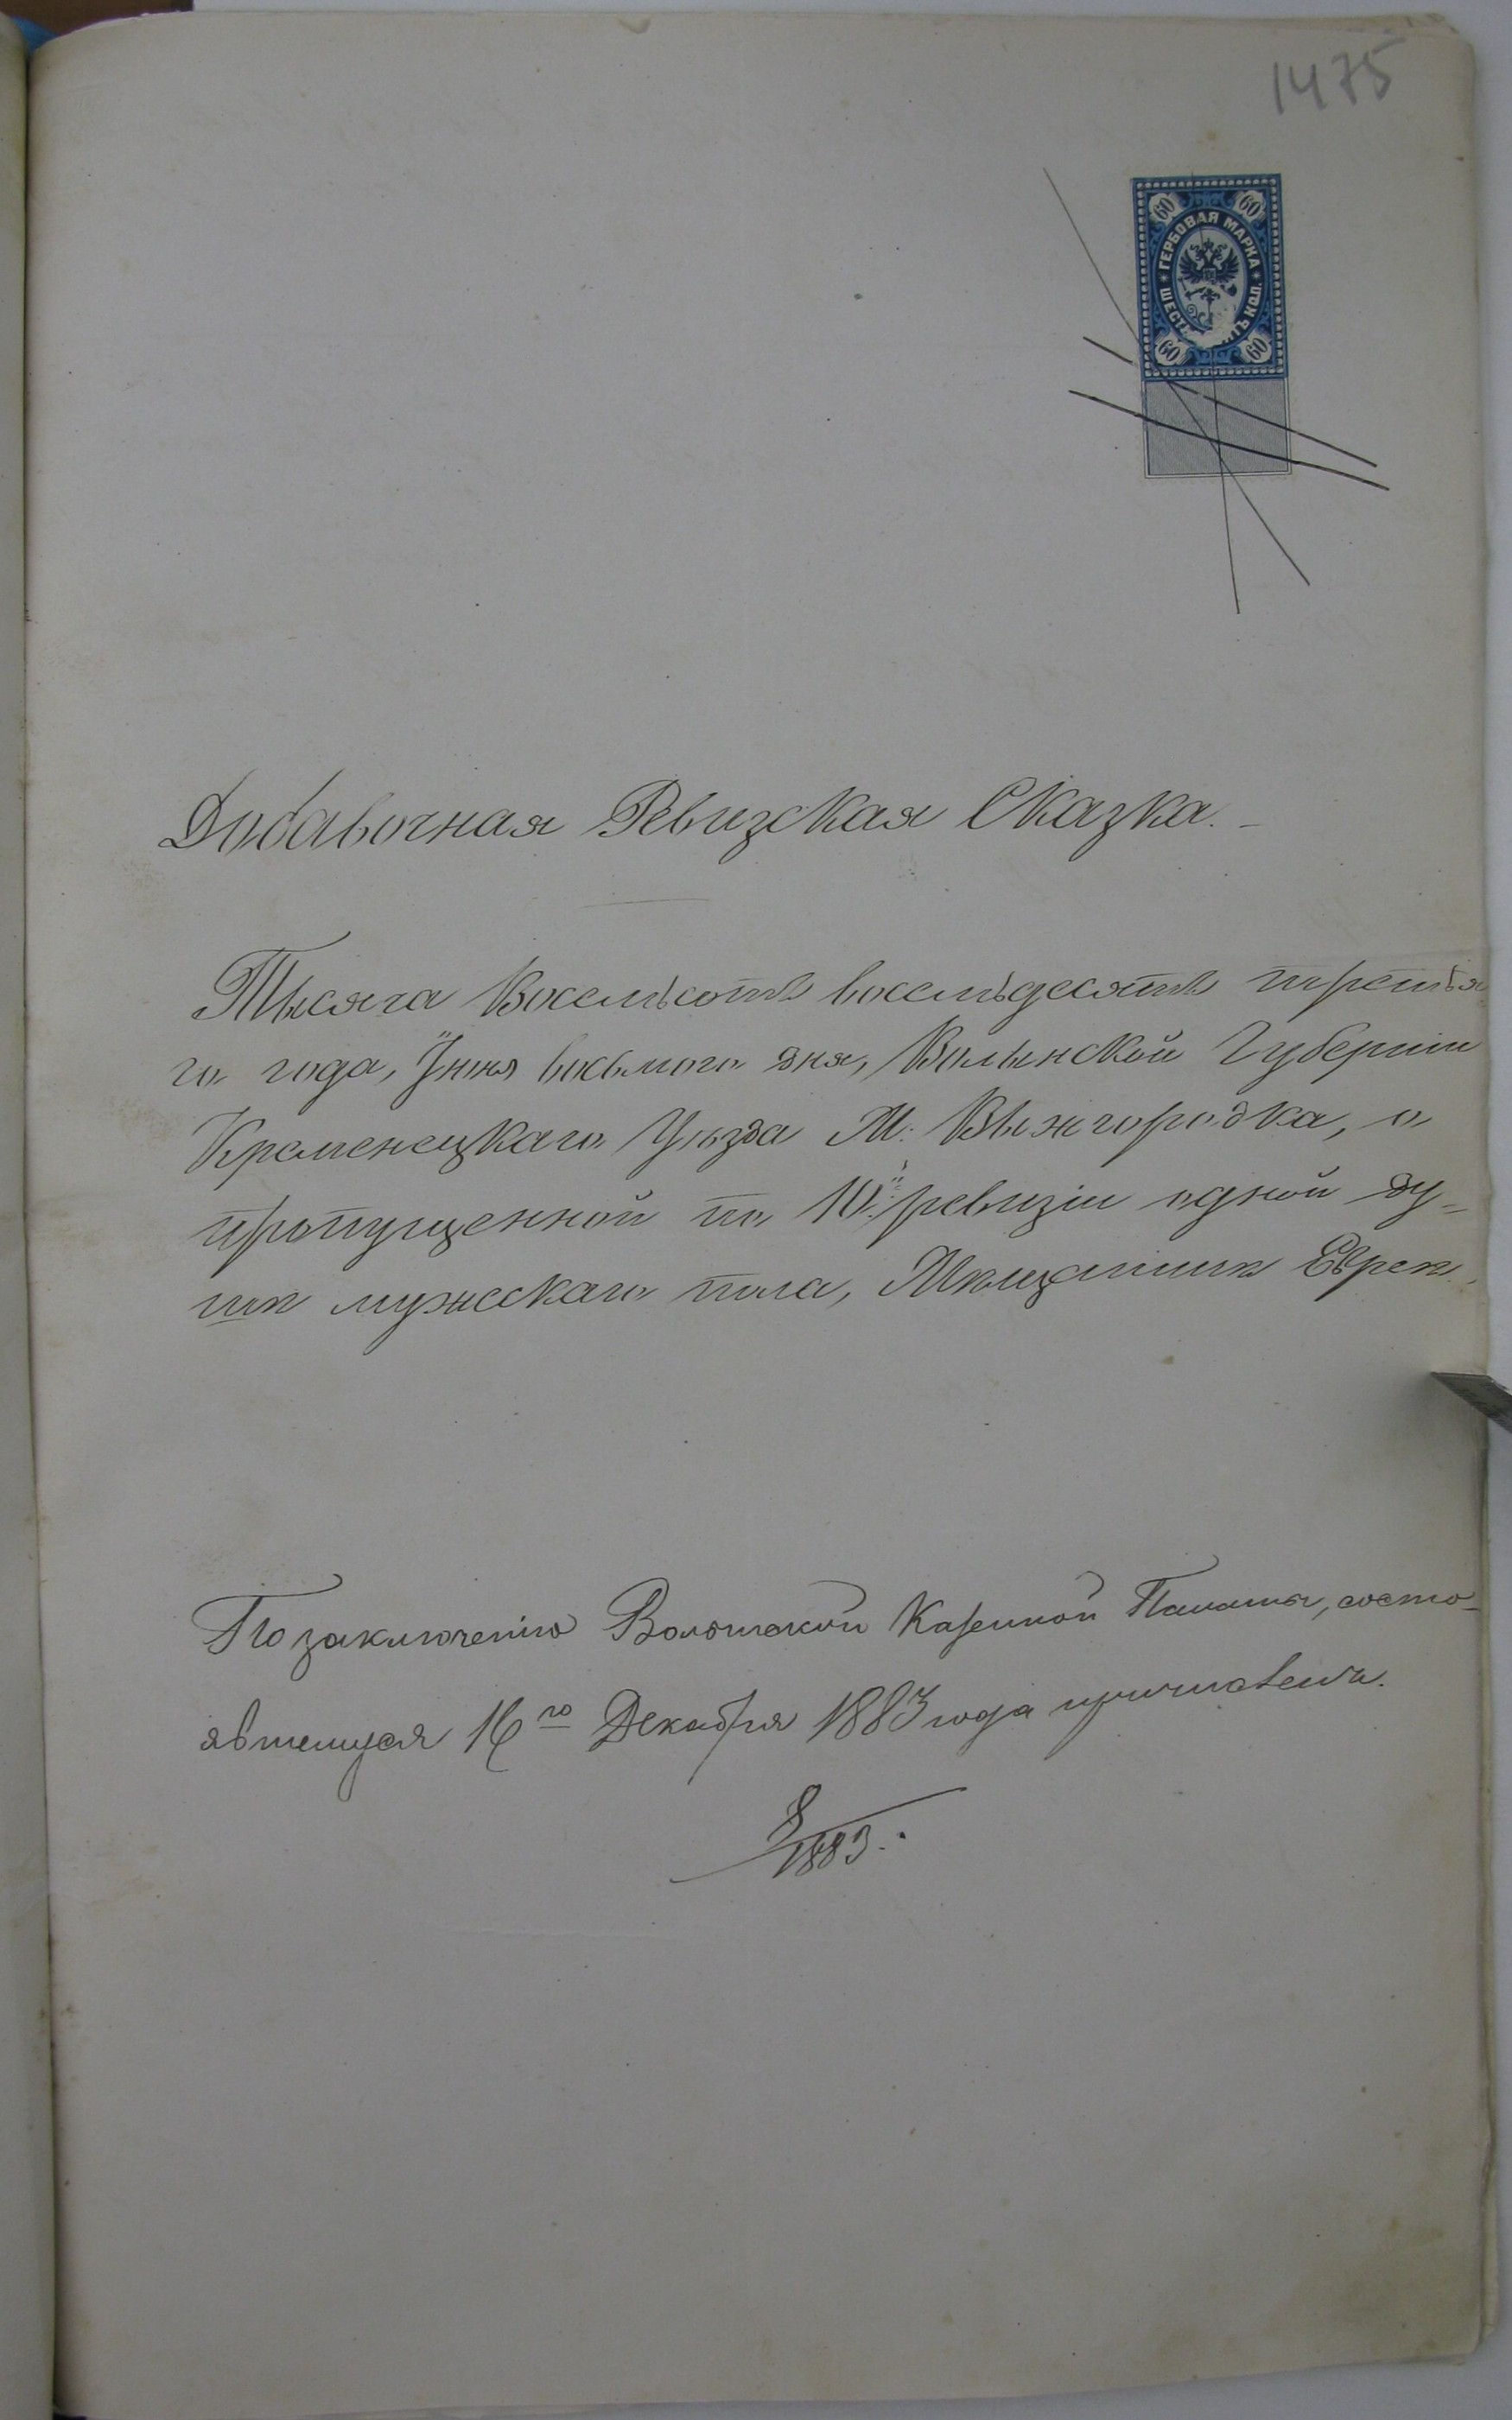 1475
60 60
ГЕРБОВАЯ МАРКА
60 60
Добавочная Ревизская Сказка.
Тысяча Восемьсотъ восемьдесятъ третья
го года, Іюня восьмого дня, Волынской Губерніи
Кременецкаго Уѣзда М. Вышгородка, о
пропущенной по 10й ревизіи одной ду=
шѣ мужескаго пола, Мѣщанинѣ Евреѣ.
По заключенію Волынской Казенной Палаты, состо-
явшемуся 16го Декабря 1883 года причисленъ.
8
1883.